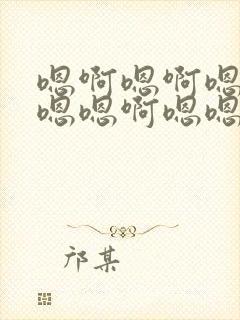 嗯啊嗯啊嗯
嗯嗯啊嗯嗯
邝某